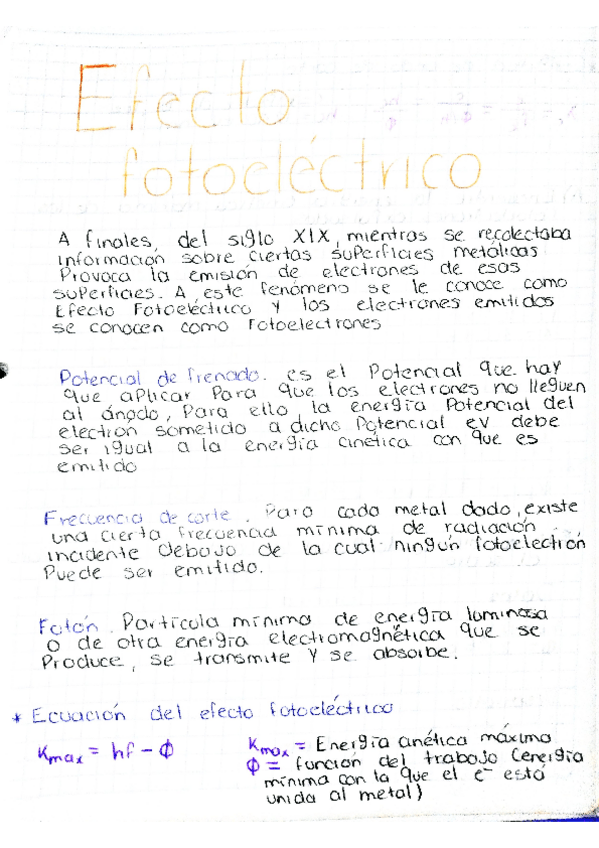 Efecto
fotoeléctrico
A finales, del siglo XIX, mientras se recolectaba
información sobre ciertas superficies metálicas
Provoca la emisión de electrones de esas
superficies. A este fenómeno se le conoce como
Efecto Fotoeléctrico y los electrones emitidos
se conocen como fotoelectrones
Potencial de frenado. es el Potencial que hay
que aplicar Para que los electrones no lleguen
al ánodo, Para ello, la energía Potencial del
electron sometido a dicho Potencial eV debe
ser igual a la energía cinética con que es
emitido
Frecuencia de corte. Para cada metal dado, existe
una cierta frecuencia mínima de radiación
incidente debajo de la cual ningún fotoelectrón
Puede ser emitido.
Fotón. Partícula mínima de energía luminosa
o de otra energía electromagnética que se
Produce, se transmite y se absorbe.
* Ecuación del efecto fotoeléctrico
Kmax = hf - Φ
Kmax = Energía cinética máxima
Φ = función del trabajo (energía
mínima con la que el e⁻ está
unida al metal)